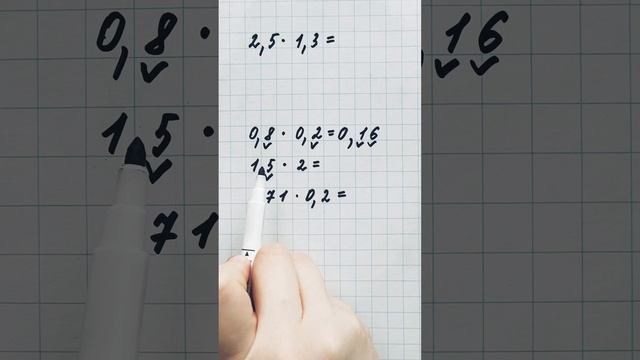 2,5 · 1,3 =
0,8 · 0,2 = 0,16
1,5 · 2 =
71 · 0,2 =